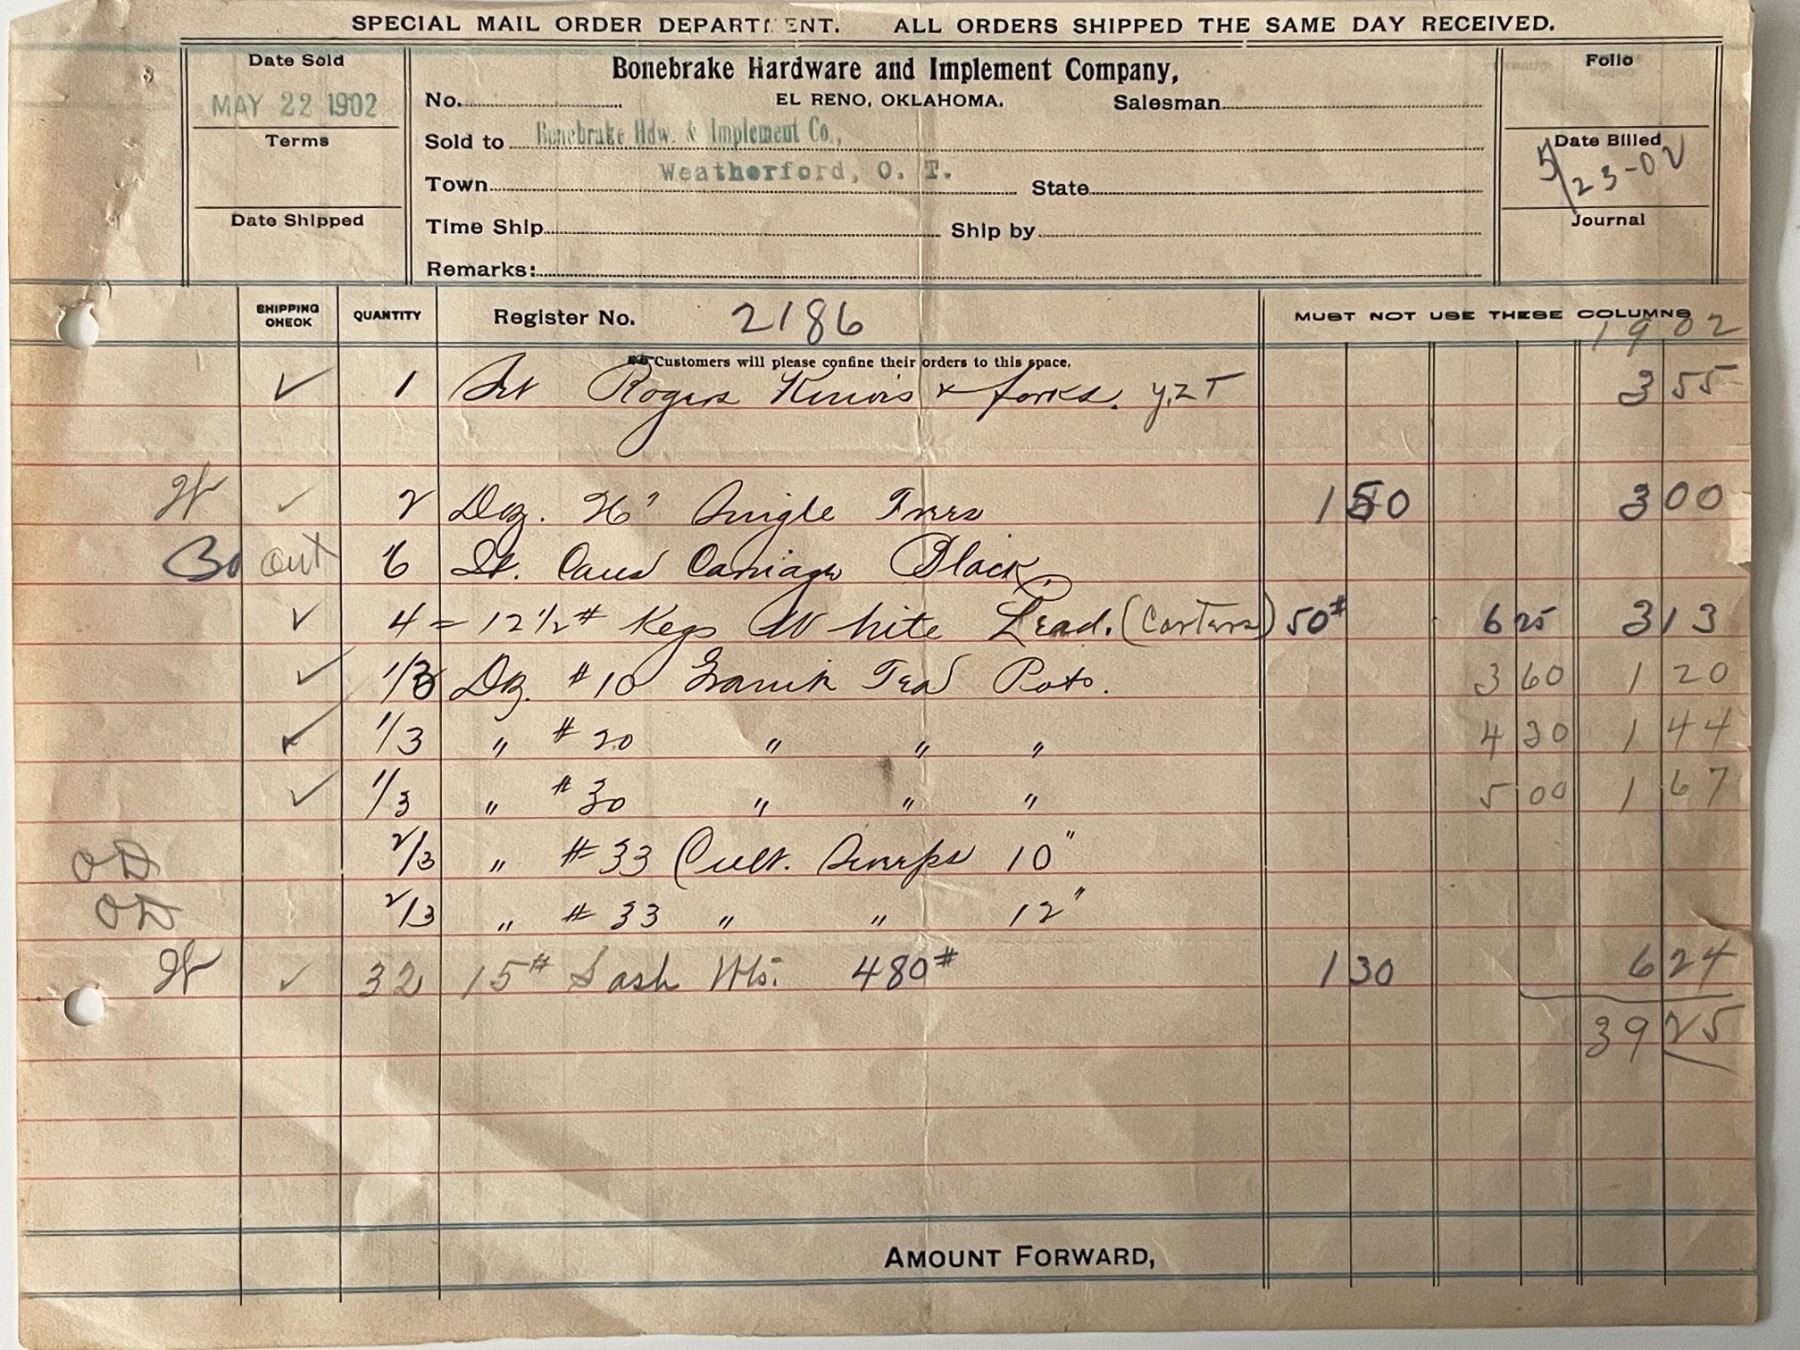 SPECIAL MAIL ORDER DEPARTMENT. ALL ORDERS SHIPPED THE SAME DAY RECEIVED.
Date Sold
MAY 22 1902
Terms
Date Shipped
Bonebrake Hardware and Implement Company,
No. EL RENO, OKLAHOMA. Salesman
Sold to Bonebrake Hdw. & Implement Co.,
Town Weatherford, O. T. State
Time Ship Ship by
Remarks:
Folio
Date Billed
5/23-02
Journal
SHIPPING CHECK QUANTITY Register No. 2186 MUST NOT USE THESE COLUMNS
1902
Customers will please confine their orders to this space.
✓ 1 Set Rogers Knives & forks. 3 55
W ✓ 2 Doz. 26" Single Trees 1 50 3 00
Bo out 6 Carriage Black.
✓ 4 = 12 1/2 # Kegs White Lead. (Carters) 50# 6 25 3 13
✓ 1/3 Dz. #10 Granite Tea Pots. 3 60 1 20
✓ 1/3 " #20 " " " 4 30 1 44
✓ 1/3 " #30 " " " 5 00 1 67
OD 2/3 " #33 Cult. Sweeps 10"
OD 2/3 " #33 " " 12"
W ✓ 32 15# Sash Wts. 480# 1 30 6 24
39 25
AMOUNT FORWARD,